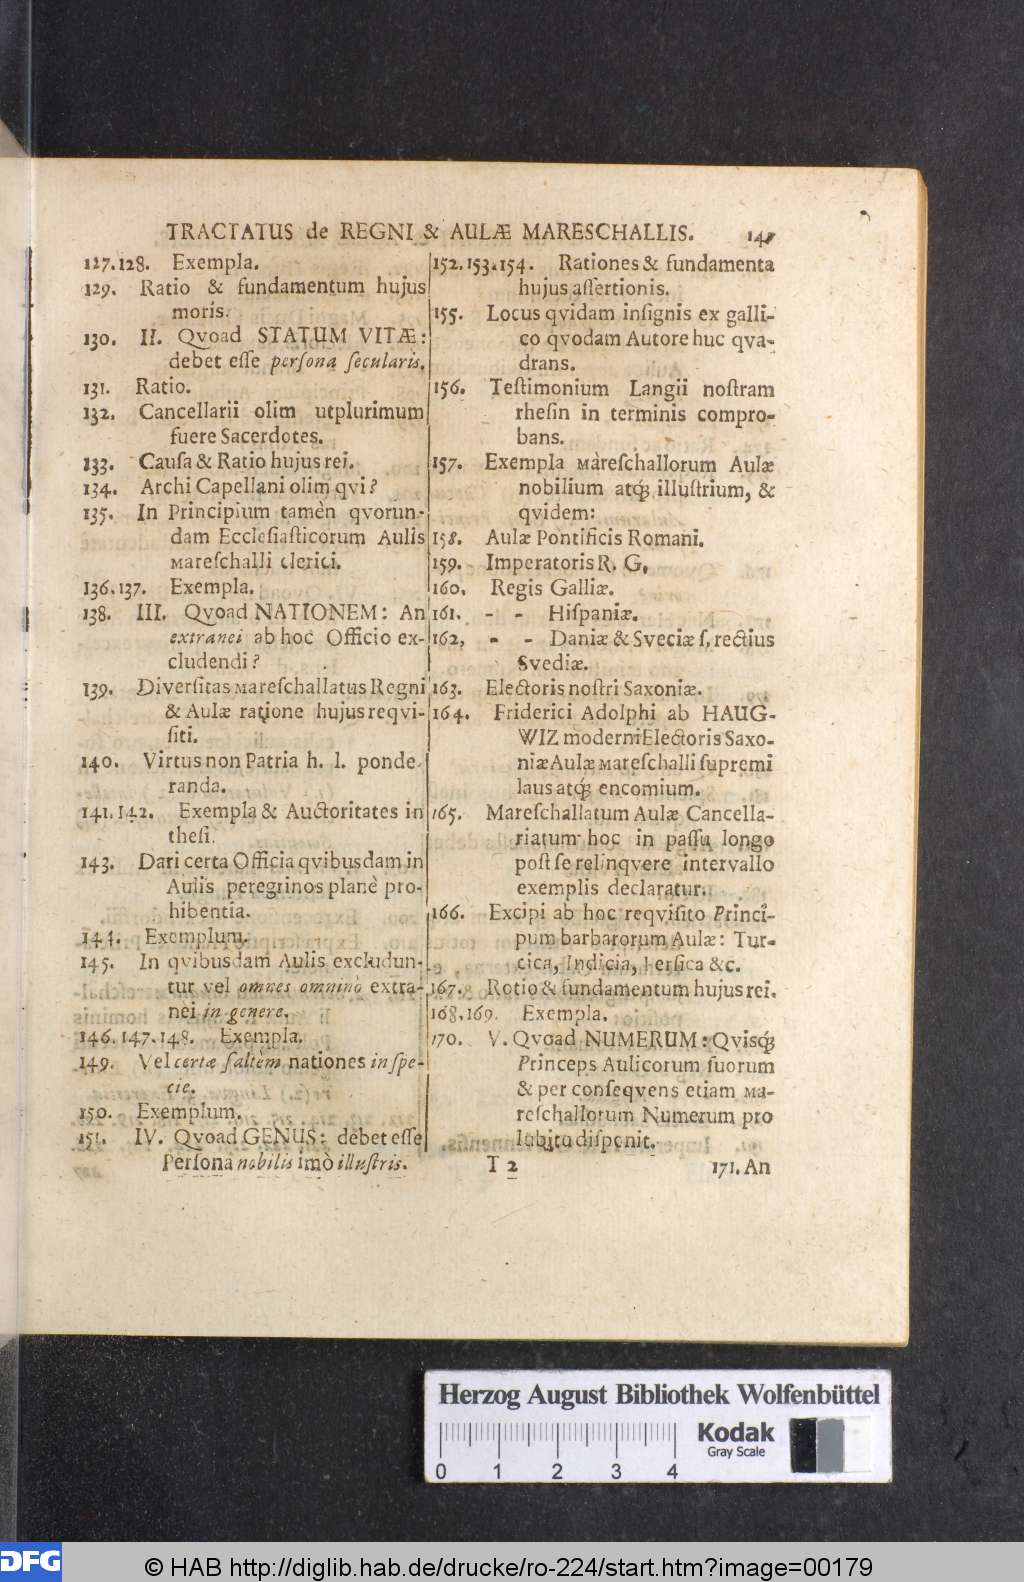 TRACTATUS de REGNI & AULÆ MARESCHALLIS. 147
127.128. Exempla.
129. Ratio & fundamentum hujus
moris.
130. II. Qvoad STATUM VITÆ:
debet eſſe perſona ſecularis.
131. Ratio.
132. Cancellarii olim utplurimum
fuere Sacerdotes.
133. Cauſa & Ratio hujus rei.
134. Archi Capellani olim qvi?
135. In Principium tamèn qvorun-
dam Eccleſiaſticorum Aulis
Mareſchalli clerici.
136.137. Exempla.
138. III. Qvoad NATIONEM: An
extranei ab hoc Officio ex-
cludendi?
139. Diverſitas Mareſchallatus Regni
& Aulæ ratione hujus reqvi-
ſiti.
140. Virtus non Patria h. l. ponde
randa.
141.142. Exempla & Auctoritates in
theſi.
143. Dari certa Officia qvibusdam in
Aulis peregrinos planè pro-
hibentia.
144. Exemplum.
145. In qvibusdam Aulis excludun-
tur vel omnes omninò extra-
nei in genere.
146.147.148. Exempla.
149. Vel certæ ſaltèm nationes in ſpe-
cie.
150. Exemplum.
151. IV. Qvoad GENUS: debet eſſe
Perſona nobilis imò illuſtris.
152.153.154. Rationes & fundamenta
hujus aſſertionis.
155. Locus qvidam inſignis ex galli-
co qvodam Autore huc qva-
drans.
156. Teſtimonium Langii noſtram
rheſin in terminis compro-
bans.
157. Exempla Mareſchallorum Aulæ
nobilium atq́; illuſtrium, &
qvidem:
158. Aulæ Pontificis Romani.
159. Imperatoris R. G.
160. Regis Galliæ.
161. - - Hiſpaniæ.
162, - - Daniæ & Sveciæ ſ. rectius
Svediæ.
163. Electoris noſtri Saxoniæ.
164. Friderici Adolphi ab HAUG-
WIZ moderni Electoris Saxo-
niæ Aulæ Mareſchalli ſupremi
laus atq́; encomium.
165. Mareſchallatum Aulæ Cancella-
riatum hoc in paſſu longo
poſt ſe relinqvere intervallo
exemplis declaratur.
166. Excipi ab hoc reqviſito Princi-
pum barbarorum Aulæ: Tur-
cica, Indicia, Perſica &c.
167. Rotio & fundamentum hujus rei.
168.169. Exempla.
170. V. Qvoad NUMERUM: Qvisq́;
Princeps Aulicorum ſuorum
& per conſeqvens etiam Ma-
reſchallorum Numerum pro
lubitu diſponit.
T 2 171. An
Herzog August Bibliothek Wolfenbüttel
Kodak
Gray Scale
0 1 2 3 4
DFG
© HAB http://diglib.hab.de/drucke/ro-224/start.htm?image=00179